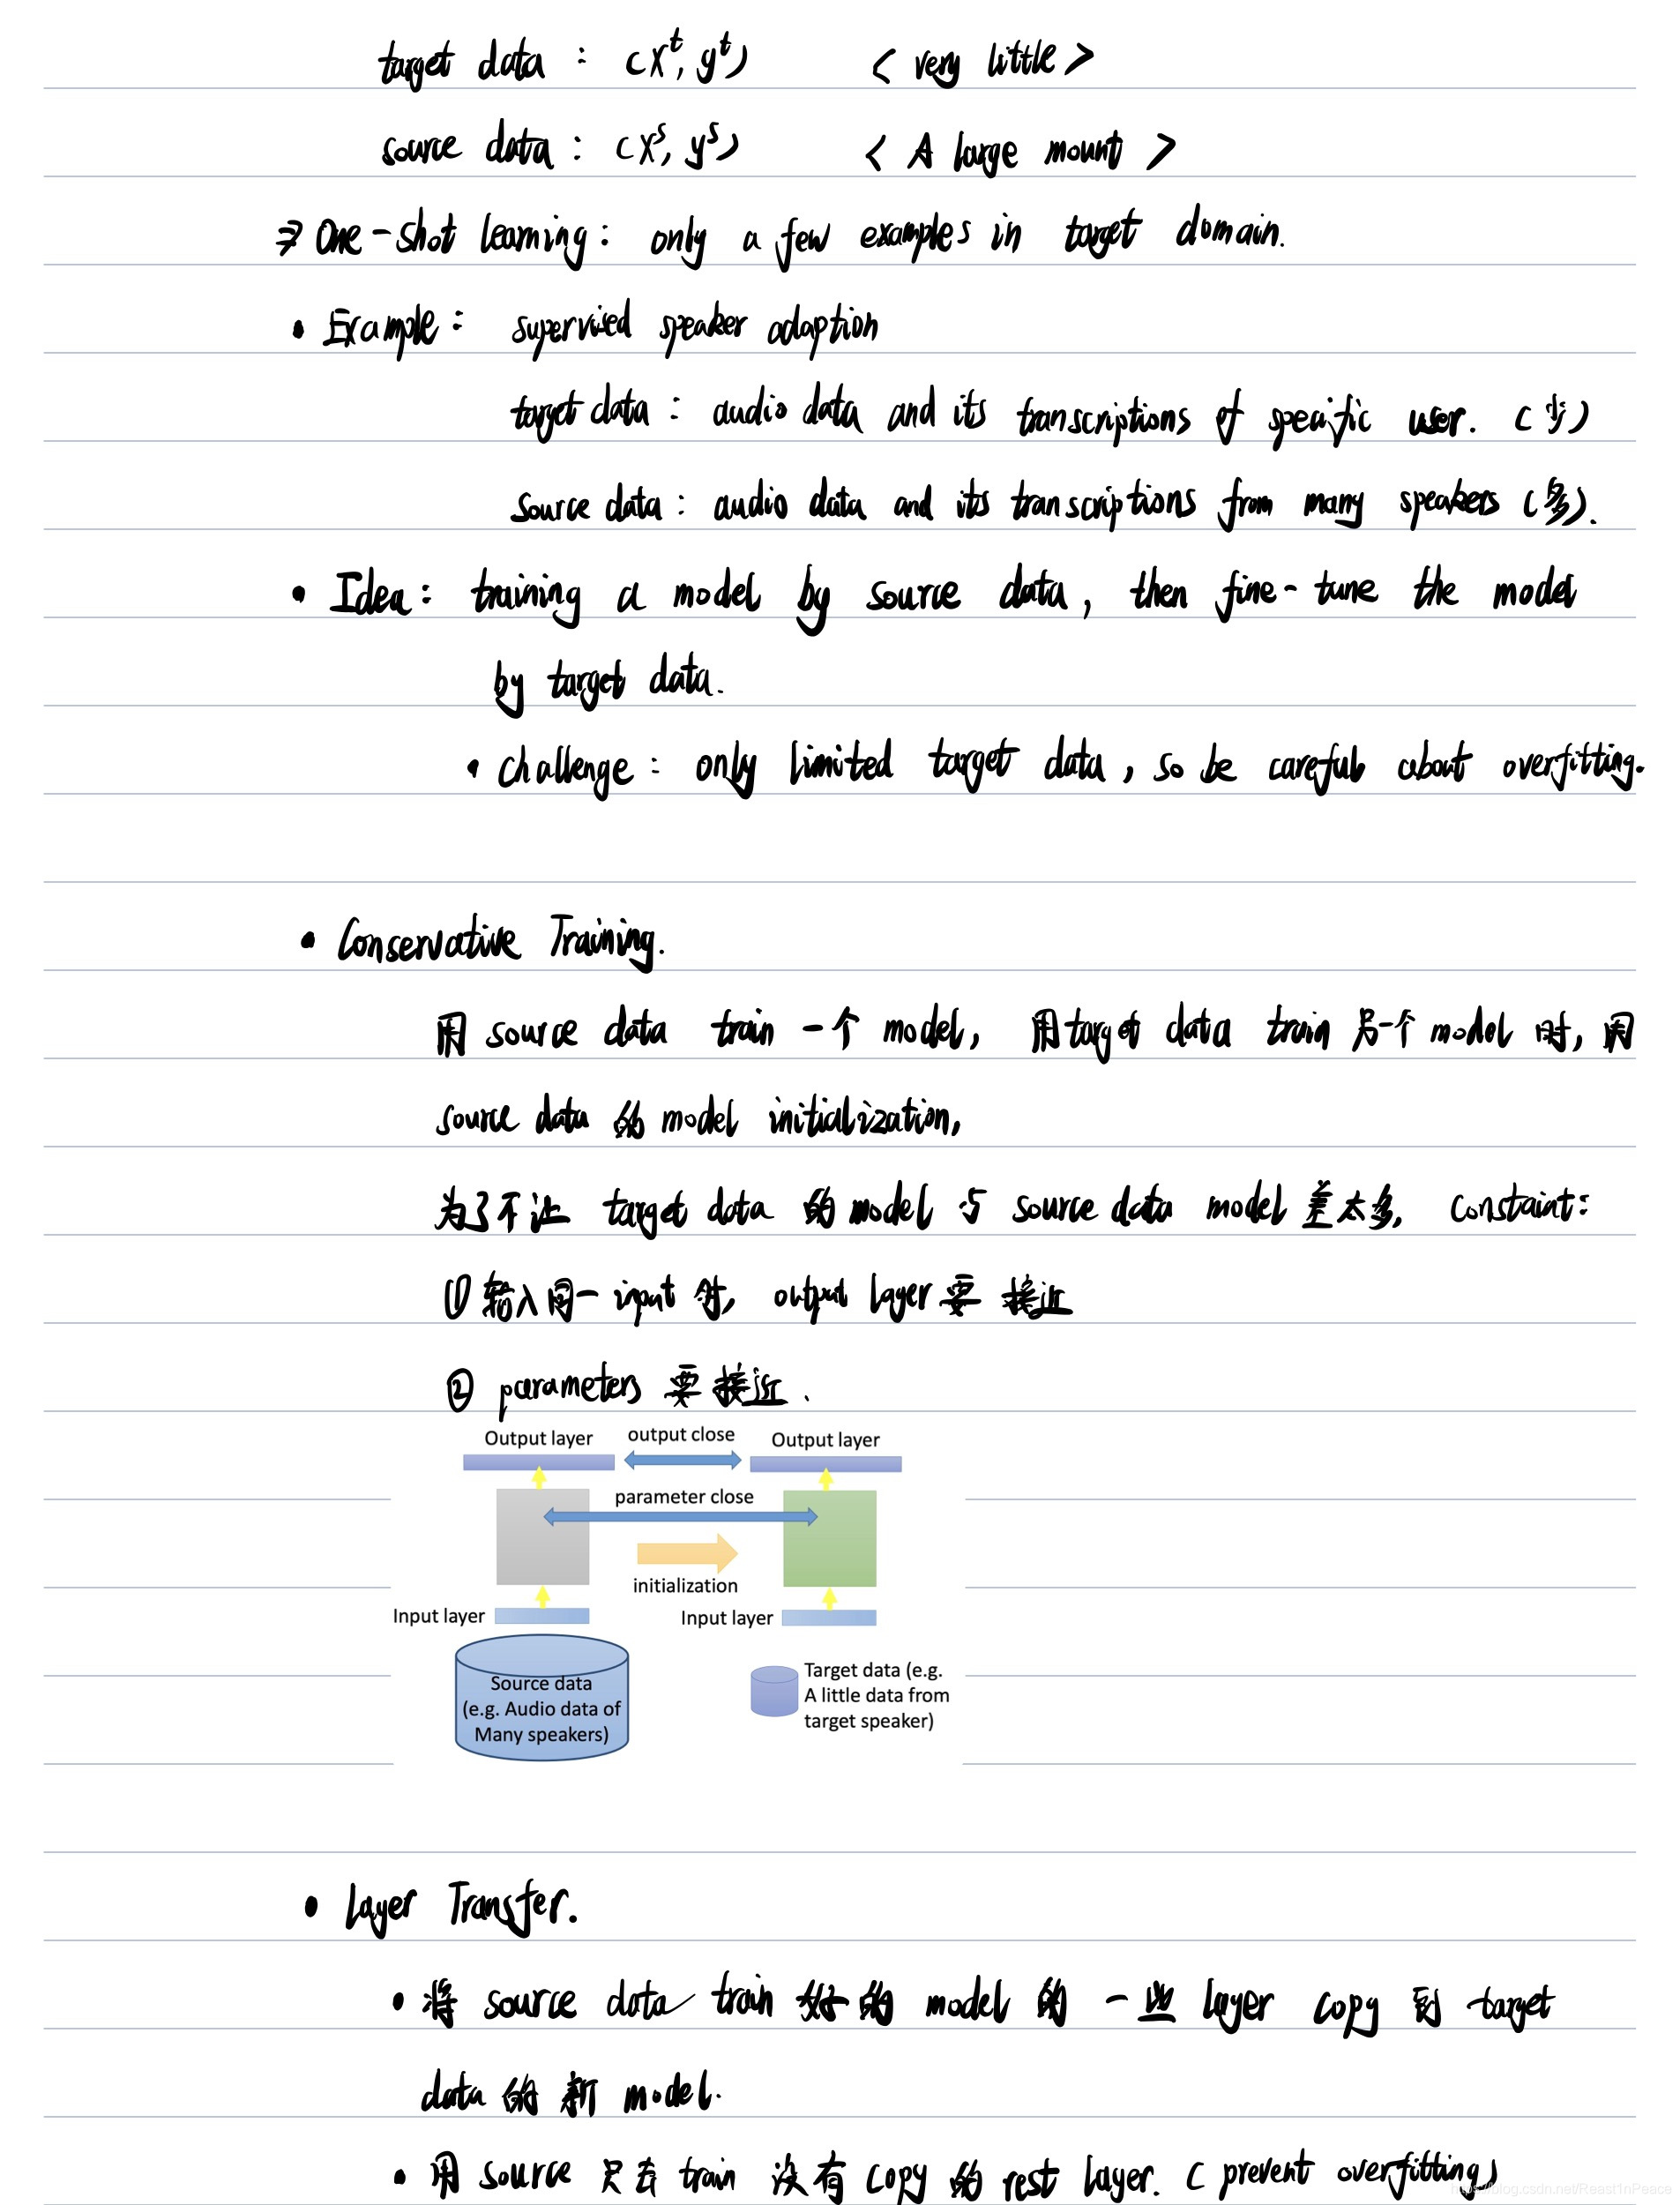 target data : (x^t, y^t) < very little >
source data : (x^s, y^s) < A large mount >
⇒ One-shot learning: only a few examples in target domain.
• Example: supervised speaker adaption
target data: audio data and its transcriptions of specific user. (少)
source data: audio data and its transcriptions from many speakers (多).
• Idea: training a model by source data, then fine-tune the model
by target data.
• challenge: only limited target data, so be careful about overfitting.
• Conservative Training.
用 source data train 一个 model, 用 target data train 另一个 model 时, 用
source data 的 model initialization,
为了不让 target data 的 model 与 source data model 差太多, constaint:
① 输入同一 input 时, output layer 要接近
② parameters 要接近.
Output layer output close Output layer
parameter close
initialization
Input layer Input layer
Source data
(e.g. Audio data of
Many speakers)
Target data (e.g.
A little data from
target speaker)
• Layer Transfer.
• 将 source data train 好的 model 的一些 layer copy 到 target
data 的新 model.
• 用 source 只去 train 没有 copy 的 rest layer. (prevent overfitting)
https://blog.csdn.net/Reast1nPeace